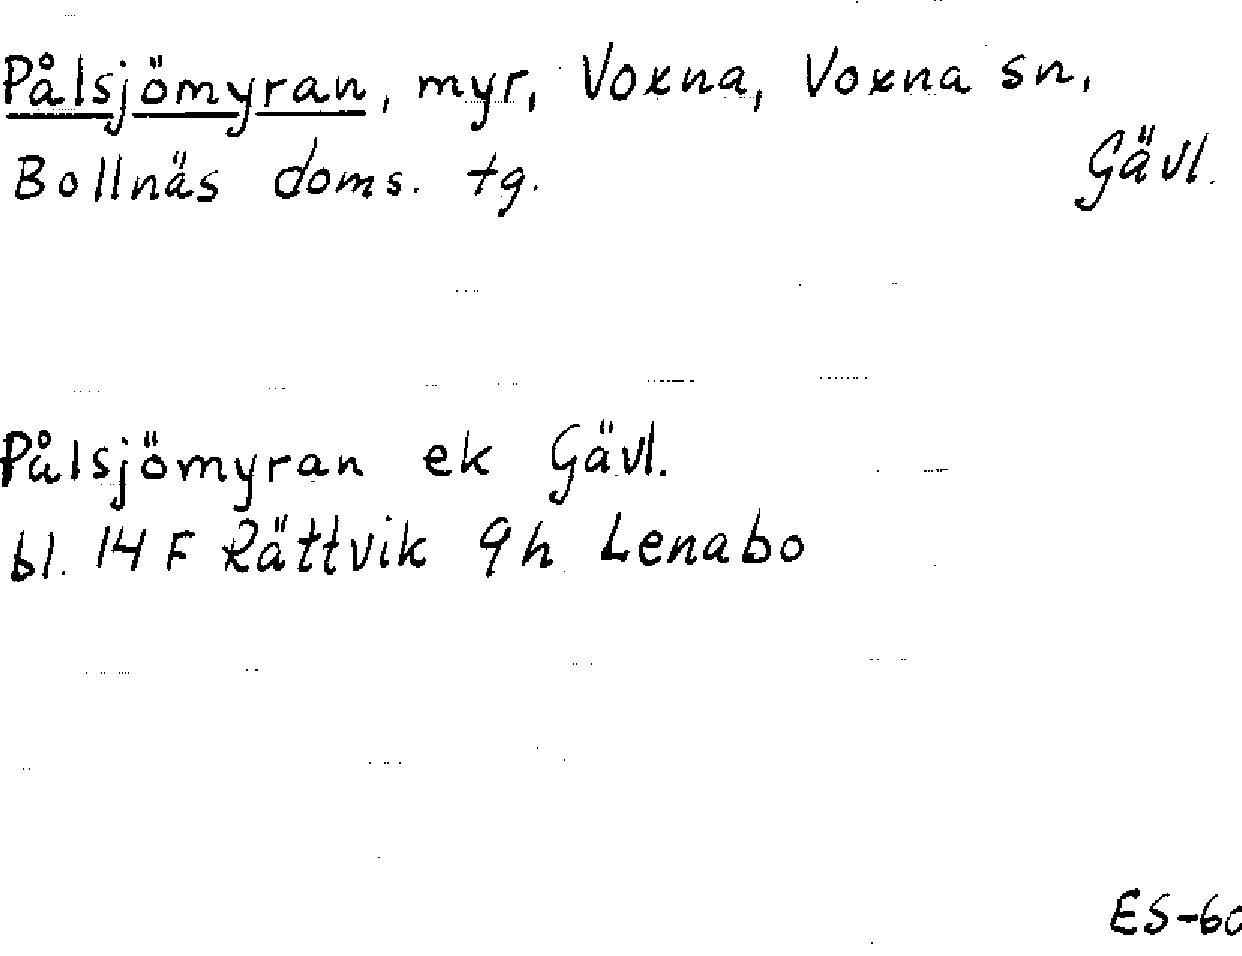 Pålsjömyran, myr, Voxna, Voxna sn,
Bollnäs doms. tg. Gävl.
Pålsjömyran ek Gävl.
bl. 14 F Rättvik 9h Lenabo
ES-60